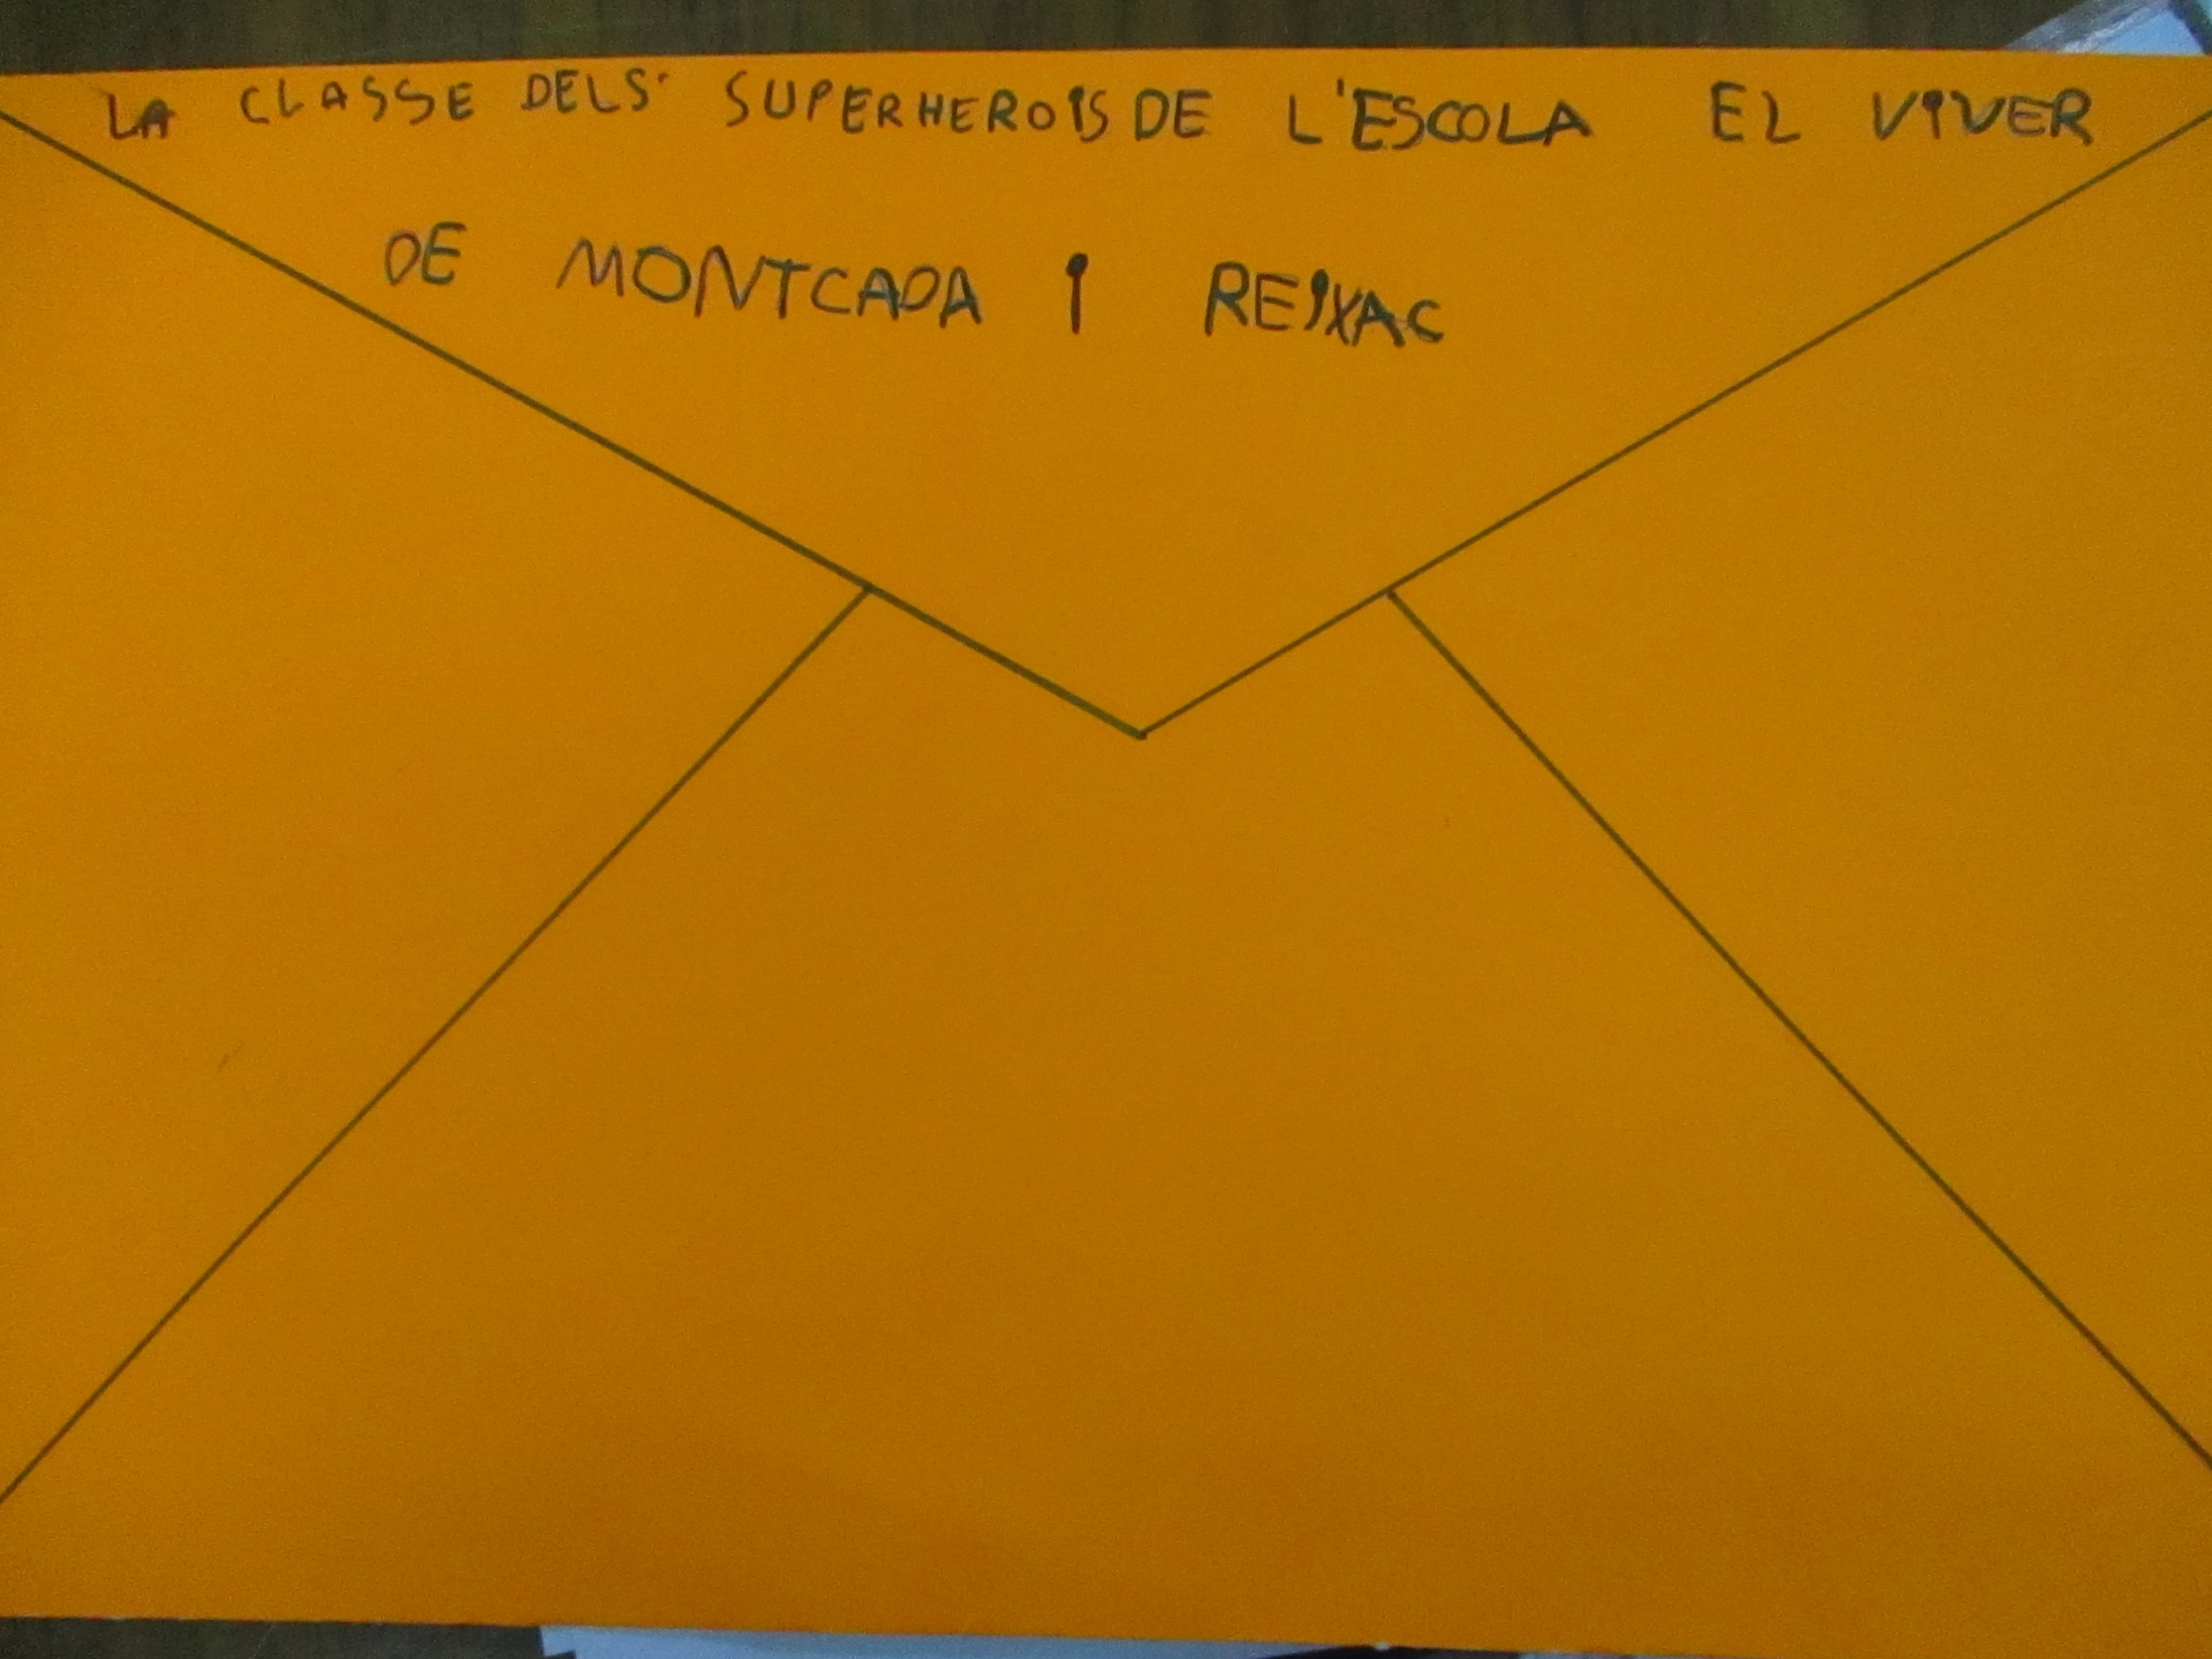 LA CLASSE DELS SUPERHEROIS DE L'ESCOLA EL VIVER
DE MONTCADA I REIXAC